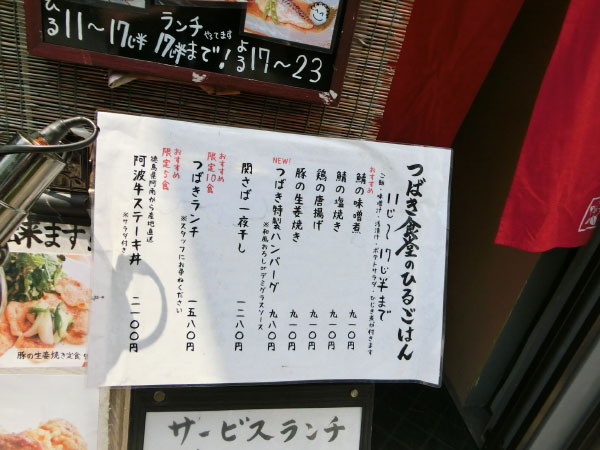 ひる
11〜17じ半
ランチ
やってます
17じ半まで!
よる
17〜23
つばき食堂のひるごはん
11じ〜17じ半まで
ご飯・味噌汁・お漬汁・ポテトサラダ・ひじき煮が付きます
おすすめ
鯖の味噌煮 九一〇円
鯖の塩焼き 九一〇円
鶏の唐揚げ 九一〇円
豚の生姜焼き 九一〇円
NEW!
つばき特製ハンバーグ 九八〇円
※和風おろしorデミグラスソース
関さば一夜干し 一二八〇円
おすすめ
限定10食
つばきランチ 一五八〇円
※スタッフにお尋ねください
おすすめ
限定5食
徳島県阿南から産地直送
阿波牛ステーキ丼 二一〇〇円
※サラダ付き
来ます!
豚の生姜焼き定食
サービスランチ